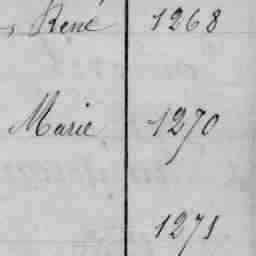 , René 1268
Marie 1270
1271